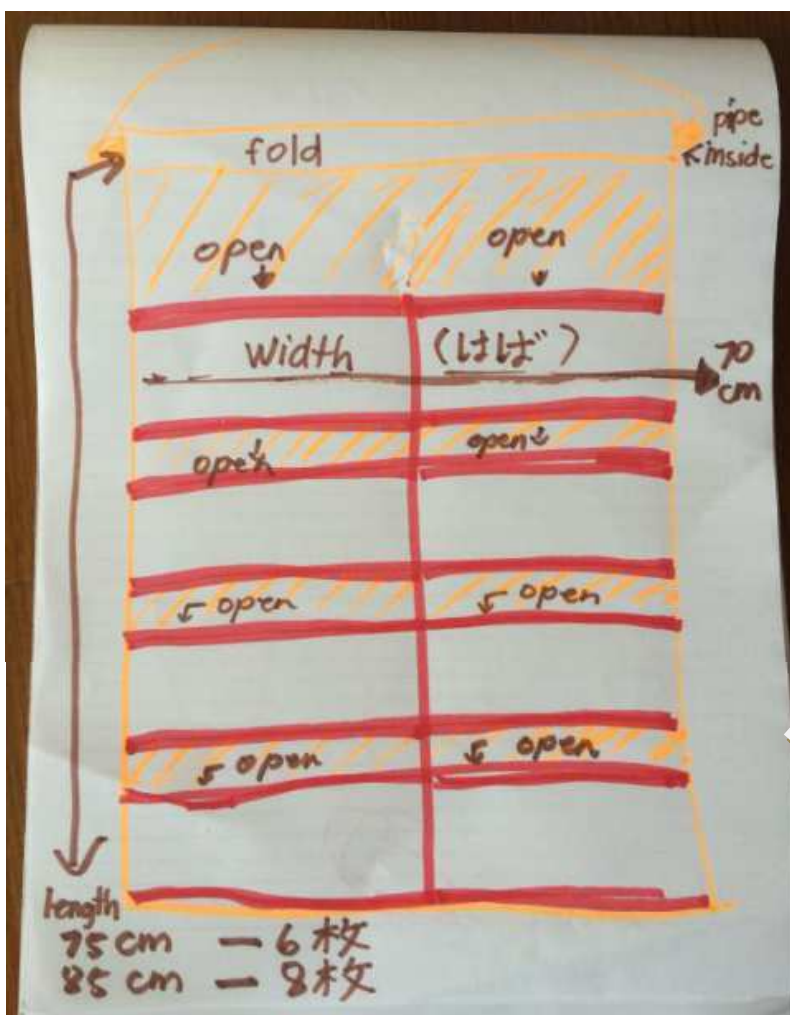 pipe
fold
inside
open open
Width (はば) 70
cm
open open
open open
open open
length
75cm ー 6枚
85cm ー 8枚